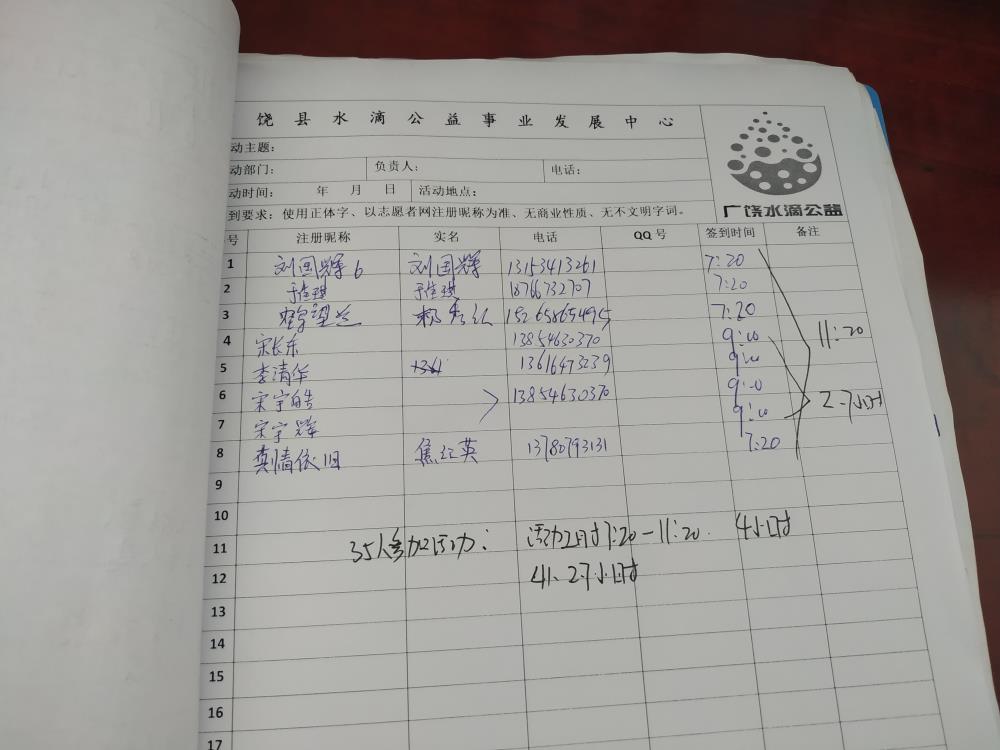 饶县水滴公益事业发展中心
动主题：
动部门： 负责人： 电话：
动时间： 年 月 日 活动地点：
到要求：使用正体字、以志愿者网注册昵称为准、无商业性质、无不文明字词。
广饶水滴公益
号 注册昵称 实名 电话 QQ号 签到时间 备注
1 刘国辉6 刘国辉 13153413261 7:20
2 于佳琪 于佳琪 18766732707 7:20
3 15265865495 7:20
4 宋长东 13854630370 9:00 11:20
5 李清华 13616473239 9:00
6 宋宇皓 13854630370 9:00 2.7小时
7 宋宇辉 9:00
8 真情依旧 焦红英 13780793131 7:20
9
10
11 35人参加活动： 活动用时7:20-11:20. 4小时
12 4人、2.7小时
13
14
15
16
17